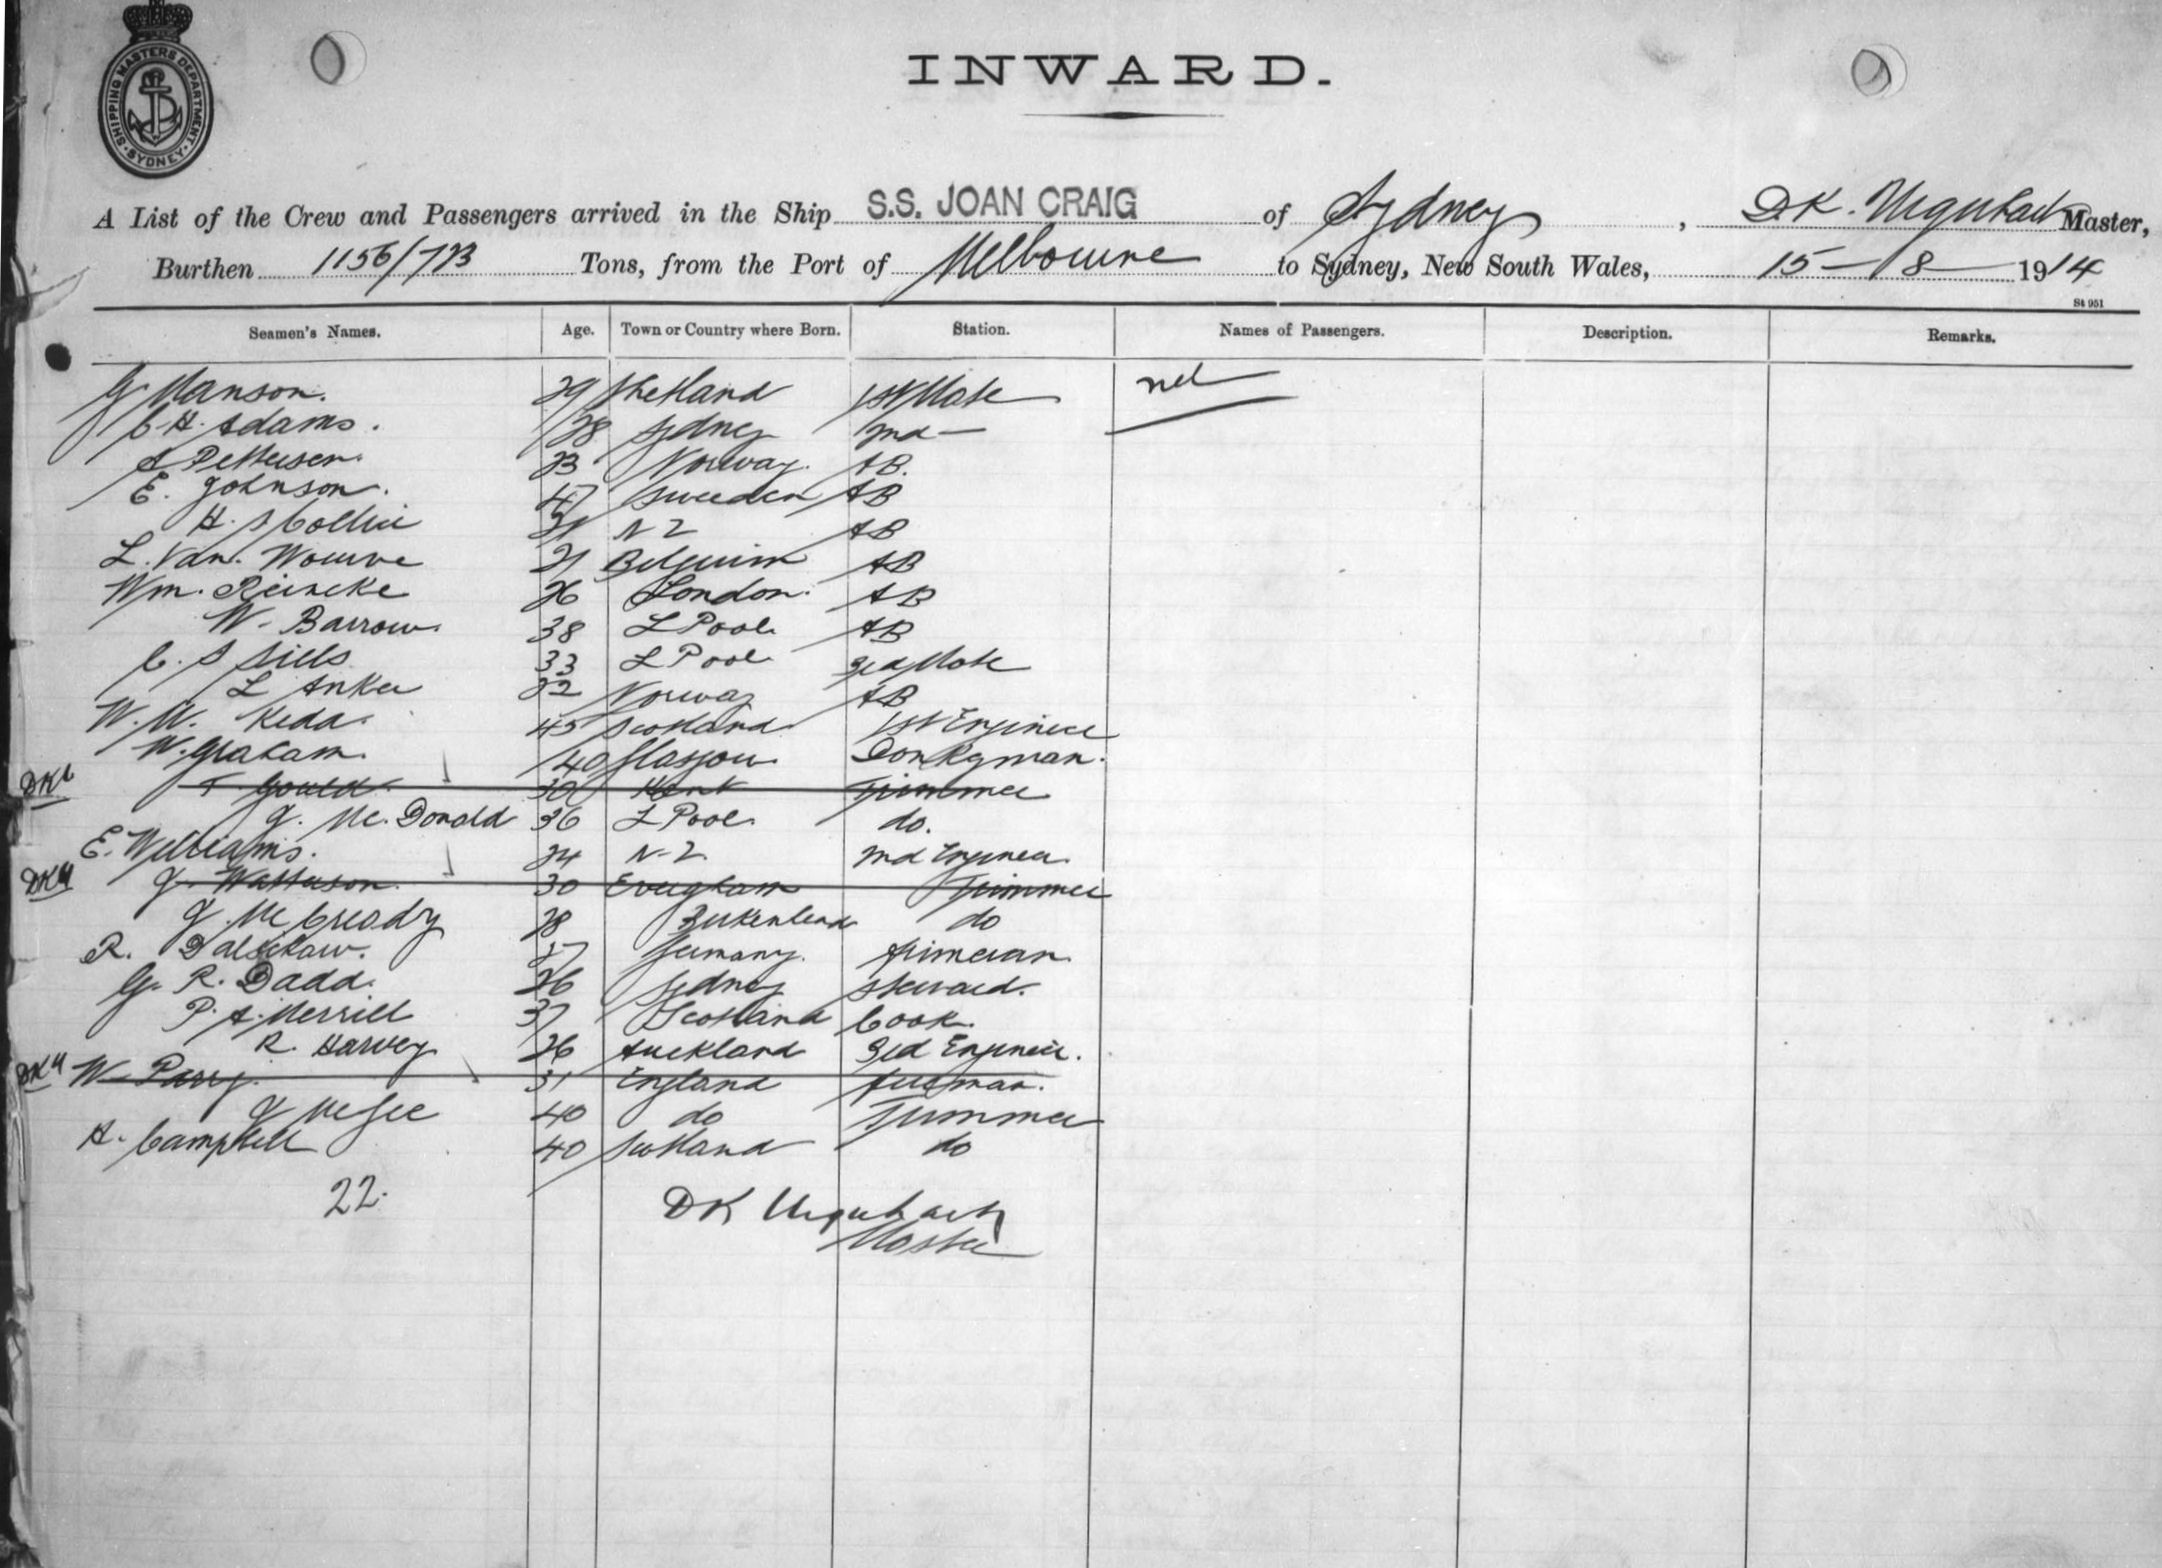 SHIPPING MASTERS DEPARTMENT
SYDNEY
INWARD.
A List of the Crew and Passengers arrived in the Ship S.S. JOAN CRAIG of Sydney, D.K. Urquhart Master,
Burthen 1156/773 Tons, from the Port of Melbourne to Sydney, New South Wales, 15-8-1914
St 951
Seamen's Names. Age. Town or Country where Born. Station. Names of Passengers. Description. Remarks.
G Manson. 29 Shetland 1st Mate nil
C H. Adams. 28 Sydney 2nd —
A Pettersen. 23 Norway. AB.
E. Johnson. 47 Sweden AB
H. S Collie 21 N Z AB
L. Van. Wourve 21 Belguim AB
Wm. Reincke 26 London. AB
W. Barrow. 38 L Pool AB
C. S Sills 33 L Pool 3rd Mate
L Anker 22 Norway AB
W. W. Keda. 45 Scotland 1st Engineer
W. Graham. 40 Glasgow. Donkyman.
DKU T Gould. 30 Kent Trimmer
J. Mc. Donald 36 L Pool. do.
E. Williams. 24 N-Z. 2nd Engineer.
DKU J. Watterson. 30 Trimmer
J. McCready 28 Birkenhead do
R. 27 Germany. fireman.
G. R. Dadd. 26 Sydney Steward.
P. A. Merrill 37 Scotland Cook.
R. Harvey 26 Auckland 3rd Engineer.
DKU W Parry. 31 England fireman.
J McGee 40 do Trimmer
H. Campbell 40 Scotland do
22.
DK Urquhart
Master